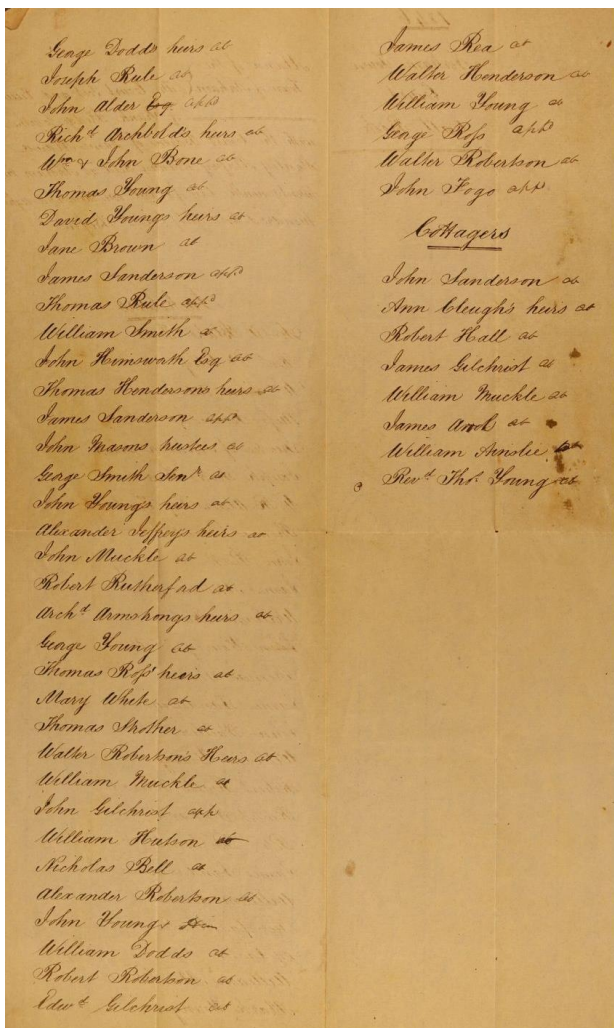 George Dodds heirs ab
Joseph Rule ab
John Alder Esq appd
Richd Archbold's heirs ab
Wm & John Bone ab
Thomas Young ab
David Youngs heirs ab
Jane Brown ab
James Sanderson appd
Thomas Rule appd
William Smith ab
John Himsworth Esq ab
Thomas Henderson's heirs ab
James Sanderson appd
John Masons trustees ab
George Smith Senr ab
John Young's heirs ab
Alexander Jeffrey's heirs ab
John Muckle ab
Robert Rutherford ab
Archd Armstrongs heirs ab
George Young ab
Thomas Ross' heirs ab
Mary White ab
Thomas Strother ab
Walter Robertson's Heirs ab
William Muckle ab
John Gilchrist app
William Hutson ab
Nicholas Bell ab
Alexander Robertson ab
John Young
William Dodds ab
Robert Robertson ab
Edwd Gilchrist ab
James Rea ab
Walter Henderson ab
William Young ab
George Ross appd
Walter Robertson ab
John Fogo appd
Cottagers
John Sanderson ab
Ann Cleugh's heirs ab
Robert Hall ab
James Gilchrist ab
William Muckle ab
James ab
William Ainslie ab
Revd Thos Young ab